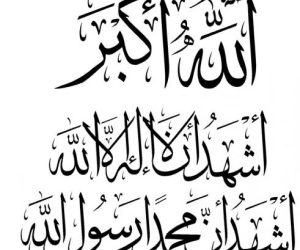 اللهُ أَكْبَر
أَشْهَدُ أَنْ لَا إِلٰهَ إِلَّا الله
أَشْهَدُ أَنَّ مُحَمَّدًا رَسُولُ الله